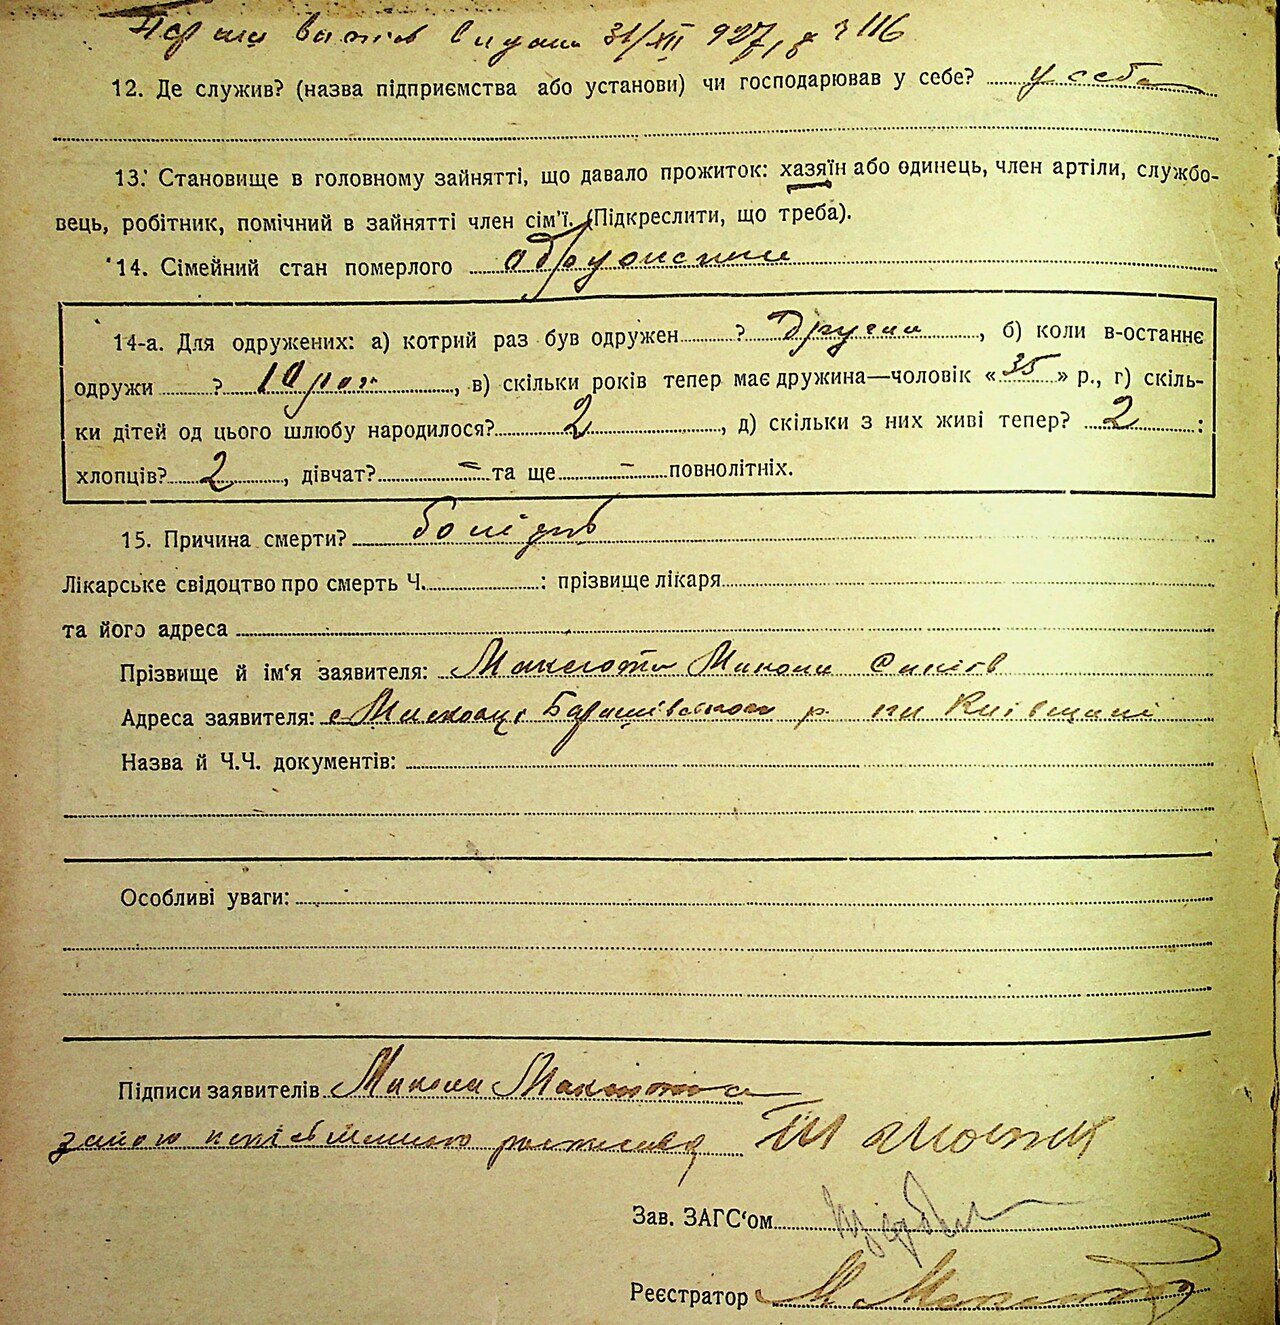 31/XII 927 р ч 116
12. Де служив? (назва підприємства або установи) чи господарював у себе? у себе
13. Становище в головному зайнятті, що давало прожиток: хазяїн або одинець, член артіли, службо-
вець, робітник, помічний в зайнятті член сім'ї. (Підкреслити, що треба).
14. Сімейний стан померлого
14-а. Для одружених: а) котрий раз був одружен ? другий, б) коли в-останнє
одружи ? 10 рок, в) скільки років тепер має дружина—чоловік «35» р., г) скіль-
ки дітей од цього шлюбу народилося? 2, д) скільки з них живі тепер? 2 :
хлопців? 2, дівчат? = та ще – повнолітніх.
15. Причина смерти?
Лікарське свідоцтво про смерть Ч. : прізвище лікаря
та його адреса
Прізвище й ім'я заявителя: Микола
Адреса заявителя: с Барашівського р. на Київщині
Назва й Ч.Ч. документів:
Особливі уваги:
Підписи заявителів Микола
Зав. ЗАГС'ом
Реєстратор М